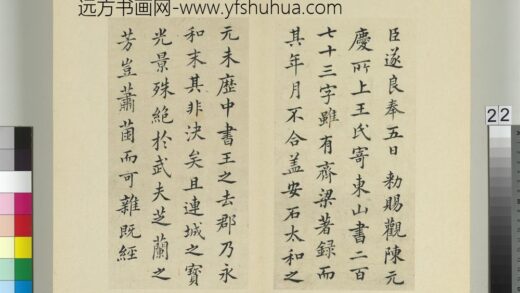 远方书画网-www.yfshuhua.com
臣遂良奉五日 勑賜觀陳元
慶所上王氏寄東山書二百
七十三字雖有齊梁著録而
其年月不合盖安石太和之
元未歷中書王之去郡乃永
和末其非決矣且連城之寳
光景殊絶於武夫芝蘭之
芳豈蕭茵而可雜既經
22